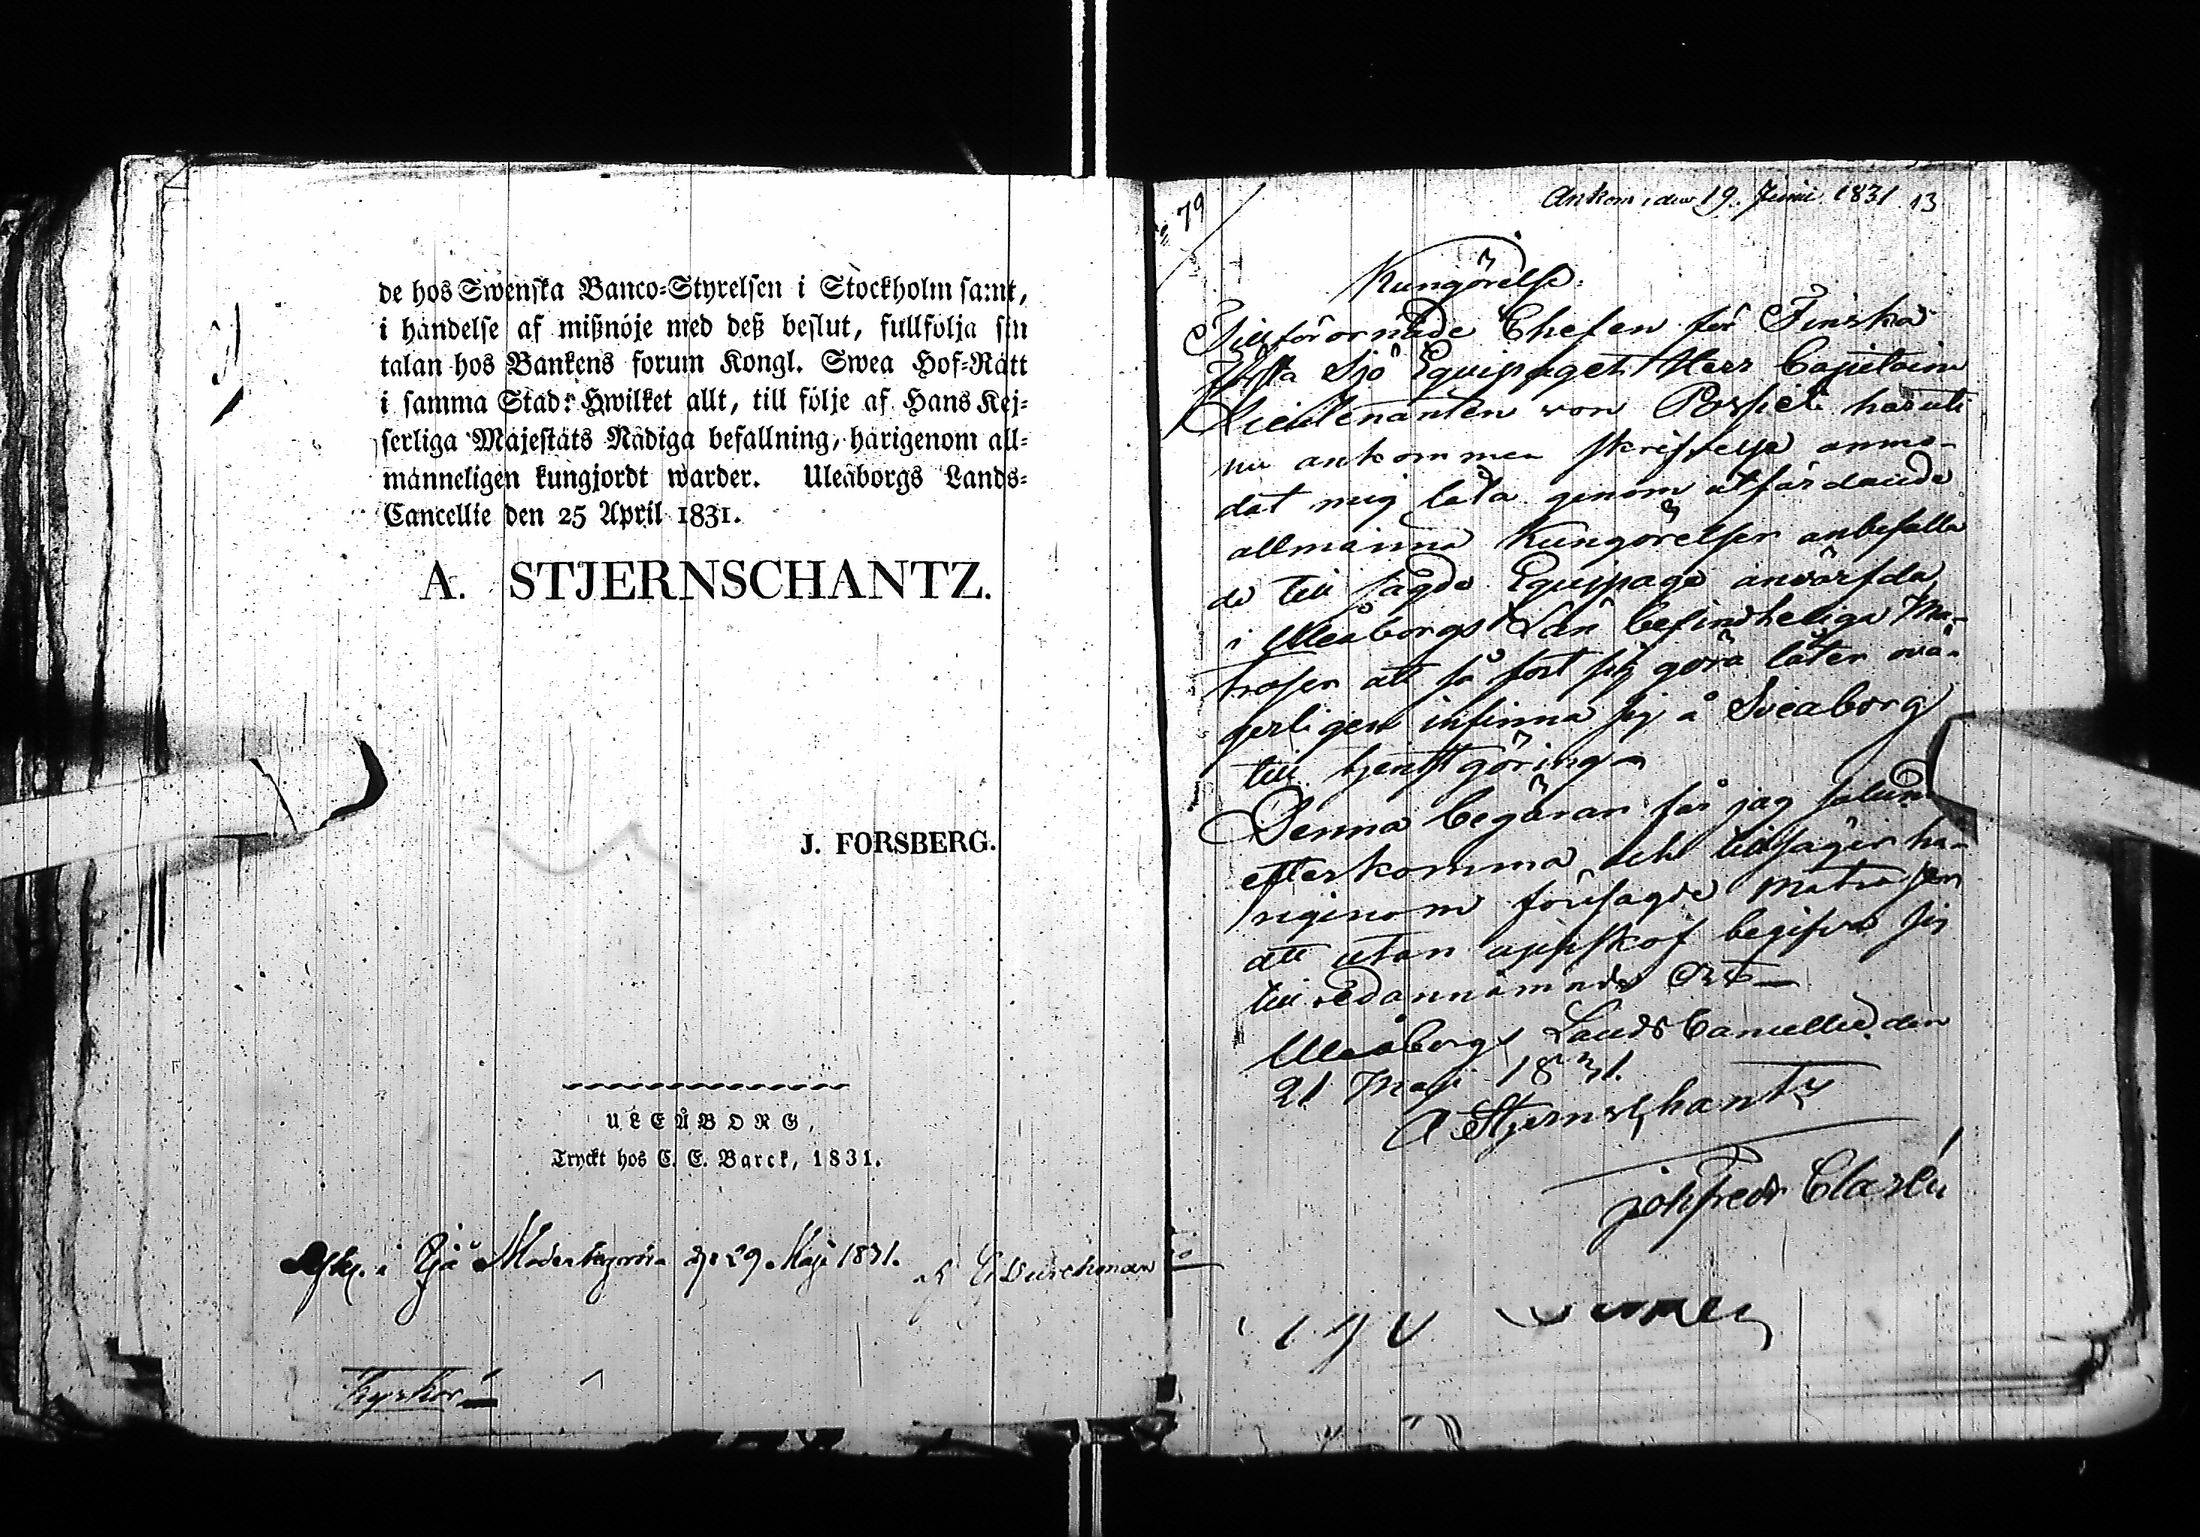 de hos Swenska Banco-Styrelsen i Stockholm samt,
i händelse af mißnöje med deß beslut, fullfölja sin
talan hos Bankens forum Kongl. Swea Hof-Rätt
i samma Stad: Hwilket allt, till följe af Hans Kej-
serliga Majestäts Nådiga befallning, härigenom all-
männeligen kungjordt warder. Uleåborgs Lands-
Cancellie den 25 April 1831.
A. STJERNSCHANTZ.
J. FORSBERG.
ULEÅBORG,
Tryckt hos C. E. Barck, 1831.
i Moderkyrka d. 29 Maji 1831. af
79
Ankom den 19. Junii 1831 13
Kungörelse.
Tillförordnade Chefen för Finska
Första Sjö Equipaget Herr Capitaine
Lieutenanten von Possiet har uti
nu ankommen skrifvelse anmo-
dat mig låta genom utfärdande
allmänna Kungörelser anbefalla
de till sagde Equipage anvärfda
i Uleåborgs Län befindteliga Ma-
troser att så fort sig göra låter ovä-
gerligen infinna sig å Sveaborg
till tjenstgöring
Denna begäran får jag sålund
efterkomma och tillsäger hä-
rigenom föresagde Matroser
att utan uppskof begifva sig
till redannämnde Ort
Uleåborgs Lands Cancellie den
21 Maji 1831.
A Stjernschantz
Joh Fredr Clasén